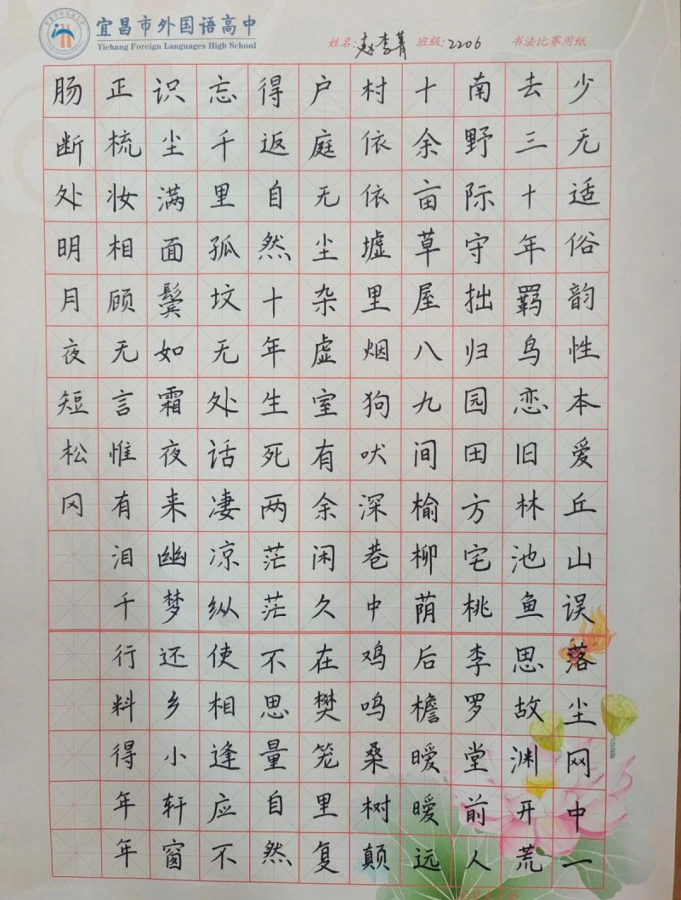 宜昌市外国语高中
Yichang Foreign Languages High School
姓名:赵李菁 班级:2206 书法比赛用纸
少无适俗韵性本爱丘山误落尘网中一
去三十年羁鸟恋旧林池鱼思故渊开荒
南野际守拙归园田方宅桃李罗堂前人
十余亩草屋八九间榆柳荫后檐暧暧远
村依依墟里烟狗吠深巷中鸡鸣桑树颠
户庭无尘杂虚室有余闲久在樊笼里复
得返自然十年生死两茫茫不思量自然
忘千里孤坟无处话凄凉纵使相逢应不
识尘满面鬓如霜夜来幽梦还乡小轩窗
正梳妆相顾无言惟有泪千行料得年年
肠断处明月夜短松冈